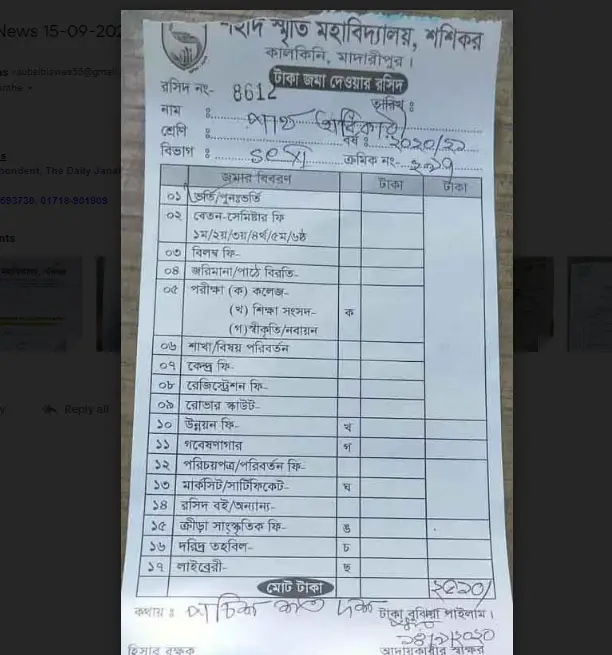 News 15-09-202
শহীদ স্মৃতি মহাবিদ্যালয়, শশিকর
কালকিনি, মাদারীপুর।
টাকা জমা দেওয়ার রসিদ
রসিদ নং- 8612
তারিখ :
নাম :
শ্রেণি : বর্ষ : ২০২০/২১
বিভাগ : ক্রমিক নং-
জমার বিবরণ টাকা টাকা
০১ ভর্তি/পুনঃভর্তি
০২ বেতন-সেমিষ্টার ফি
১ম/২য়/৩য়/৪র্থ/৫ম/৬ষ্ঠ
০৩ বিলম্ব ফি-
০৪ জরিমানা/পাঠ বিরতি-
০৫ পরীক্ষা (ক) কলেজ-
(খ) শিক্ষা সংসদ- ক
(গ)স্বীকৃতি/নবায়ন
০৬ শাখা/বিষয় পরিবর্তন
০৭ কেন্দ্র ফি-
০৮ রেজিস্ট্রেশন ফি-
০৯ রোভার স্কাউট-
১০ উন্নয়ন ফি- খ
১১ গবেষণাগার গ
১২ পরিচয়পত্র/পরিবর্তন ফি-
১৩ মার্কসিট/সার্টিফিকেট- ঘ
১৪ রসিদ বই/অন্যান্য-
১৫ ক্রীড়া সাংস্কৃতিক ফি- ঙ
১৬ দরিদ্র তহবিল- চ
১৭ লাইব্রেরী- ছ
মোট টাকা
কথায় : টাকা বুঝিয়া পাইলাম।
হিসাব রক্ষক আদায়কারীর স্বাক্ষর
593726, 01718-801908
ondent, The Daily Jana
Reply all